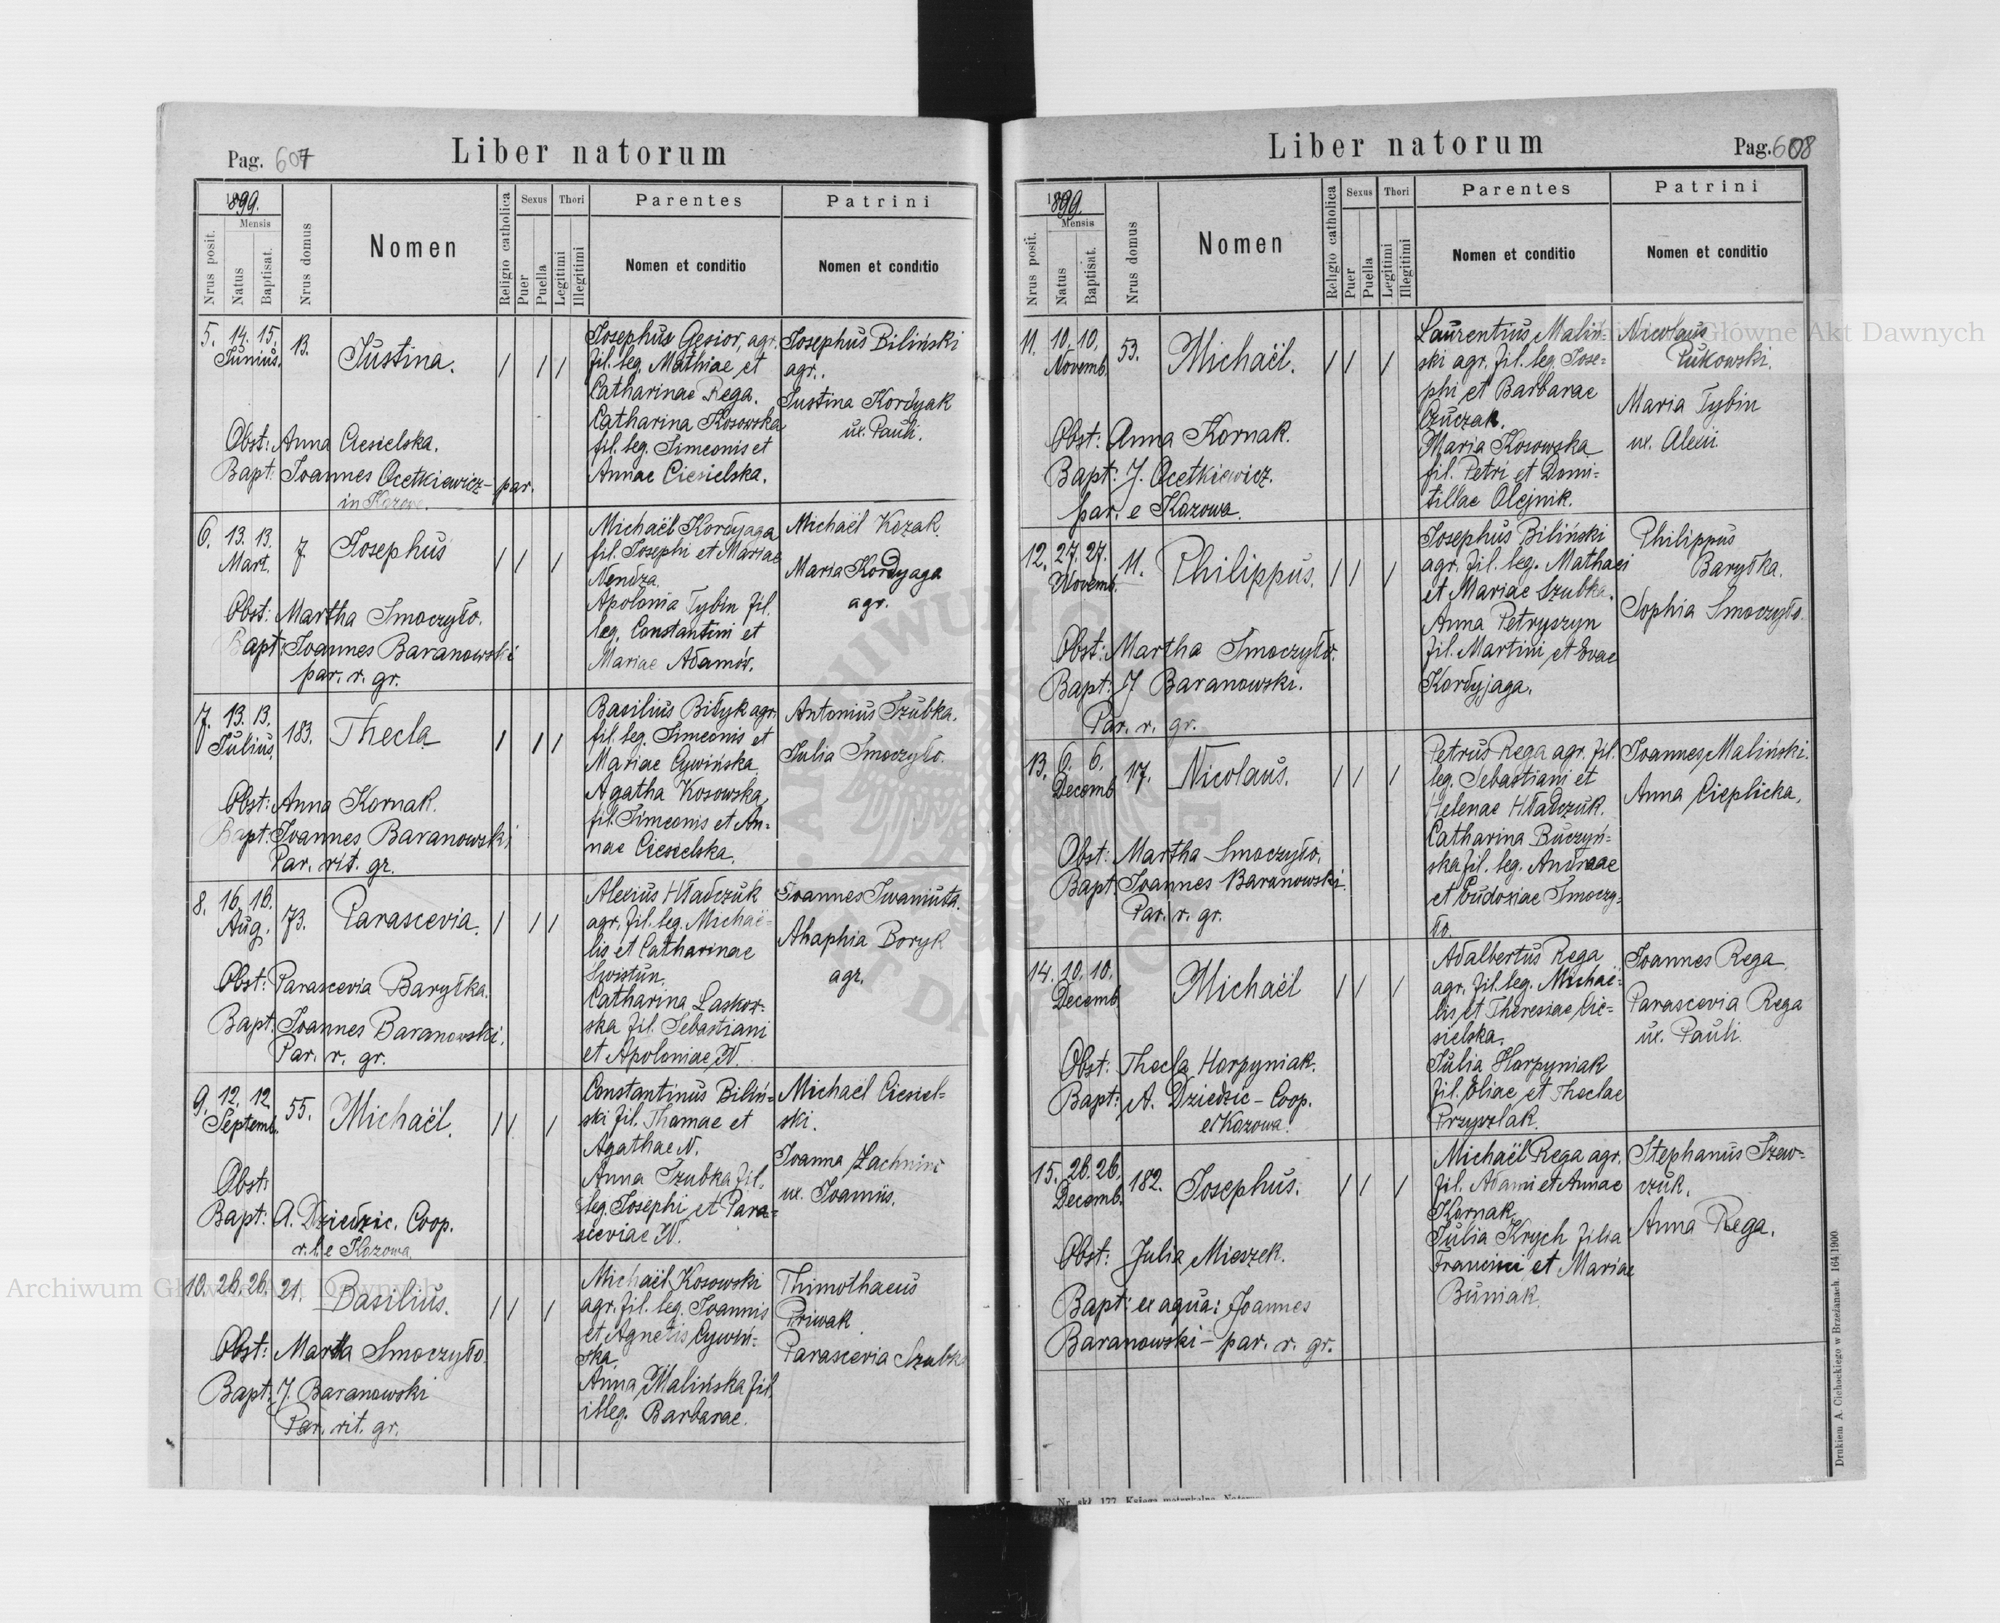 Pag. 607
Liber natorum
1899.
Nrus posit.
Mensis
Natus
Baptisat.
Nrus domus
Nomen
Religio catholica
Sexus
Puer
Puella
Thori
Legitimi
Illegitimi
Parentes
Nomen et conditio
Patrini
Nomen et conditio
5. 14. 15. Junius. 13. Justina.
Obst: Anna Ciesielska.
Bapt: Joannes Ocetkiewicz – par.
in Kozowa.
Josephus Gesior, agr.
fil. leg. Mathiae et
Catharinae Rega.
Catharina Kosowska
fil. leg. Simeonis et
Annae Ciesielska.
Josephus Biliński
agr.
Justina Kordyak
ux. Pauli.
6. 13. 13. Mart. 7. Josephus
Obst: Martha Smoczyło.
Bapt: Joannes Baranowski
par. r. gr.
Michaël Kordyjaga
fil. Josephi et Mariae
Nendza.
Apolonia Tybin fil.
leg. Constantini et
Mariae Adamów.
Michaël Kozak.
Maria Kordyaga
agr.
7. 13. 13. Julius. 183. Thecla
Obst: Anna Kornak.
Bapt: Joannes Baranowski
Par. rit. gr.
Basilius Biłyk agr.
fil. leg. Simeonis et
Mariae Cywińska.
Agatha Kosowska,
fil. Simeonis et An-
nae Ciesielska.
Antonius Szubka.
Julia Smoczyło.
8. 16. 16. Aug. 73. Parascevia.
Obst: Parascevia Baryłka.
Bapt. Joannes Baranowski.
Par. r. gr.
Alexius Hładczuk
agr. fil. leg. Michaë-
lis et Catharinae
Swistun.
Catharina Laskow-
ska fil. Sebastiani
et Apoloniae N.
Joannes Iwaniuta.
Ahaphia Boryk
agr.
9. 12. 12. Septemb. 55. Michaël.
Obst:
Bapt: A. Dziedzic. Coop.
r. l. e Kozowa.
Constantinus Biliń-
ski fil. Thomae et
Agathae N.
Anna Szubka fil.
leg. Josephi et Para-
sceviae N.
Michaël Ciesiel-
ski.
Joanna
ux. Joannis.
10. 26. 26. 21. Basilius.
Obst: Marta Smoczyło
Bapt: J. Baranowski
Par. rit. gr.
Michaël Kosowski
agr. fil. leg. Joannis
et Agnetis Cywiń-
ska.
Anna Malińska fil.
illeg. Barbarae.
Thimothaeus
Priwak
Parascevia Szubka
Liber natorum
Pag. 608
1899.
Nrus posit.
Mensis
Natus
Baptisat.
Nrus domus
Nomen
Religio catholica
Sexus
Puer
Puella
Thori
Legitimi
Illegitimi
Parentes
Nomen et conditio
Patrini
Nomen et conditio
11. 10. 10. Novemb. 53. Michaël.
Obst: Anna Kornak.
Bapt: J. Ocetkiewicz.
par. e Kozowa.
Laurentius Maliń-
ski agr. fil. leg. Jose-
phi et Barbarae
Czuczak.
Maria Kosowska
fil. Petri et Domi-
tillae Olejnik.
Nicolaus
Pukowski.
Maria Tybin
ux. Alexii
12. 27. 27. Novemb. 11. Philippus.
Obst: Martha Smoczyło.
Bapt: J Baranowski.
Par. r. gr.
Josephus Biliński
agr. fil. leg. Mathaei
et Mariae Szubka.
Anna Petryszyn
fil. Martini et Evae
Kordyjaga.
Philippus
Baryłka.
Sophia Smoczyło.
13. 6. 6. Decemb. 17. Nicolaus.
Obst: Martha Smoczyło.
Bapt. Joannes Baranowski.
Par. r. gr.
Petrus Rega agr. fil.
leg. Sebastiani et
Helenae Hładczuk.
Catharina Buczyń-
ska fil. leg. Andreae
et Eudoxiae Smoczy-
ło.
Joannes Maliński.
Anna Cieplicka.
14. 10. 10. Decemb. Michaël
Obst: Thecla Horpyniak.
Bapt: A. Dziedzic – Coop.
e Kozowa.
Adalbertus Rega
agr. fil. leg. Michaë-
lis et Theresiae Cie-
sielska.
Julia Horpyniak
fil. Eliae et Theclae
Przyszlak.
Joannes Rega.
Parascevia Rega
ux. Pauli.
15. 26. 26. Decemb. 182. Josephus.
Obst: Julia Mieszek.
Bapt: ex aqua: Joannes
Baranowski – par. r. gr.
Michaël Rega agr.
fil. Adami et Annae
Kornak
Julia Krych filia
Francisci et Mariae
Buniak.
Stephanus Szew-
czuk.
Anna Rega.
Drukiem A. Cichockiego w Brzeżanach. 164/1900
Nr. skł. 177. Księga metrykalna.
Archiwum Główne Akt Dawnych
Archiwum Główne Akt Dawnych